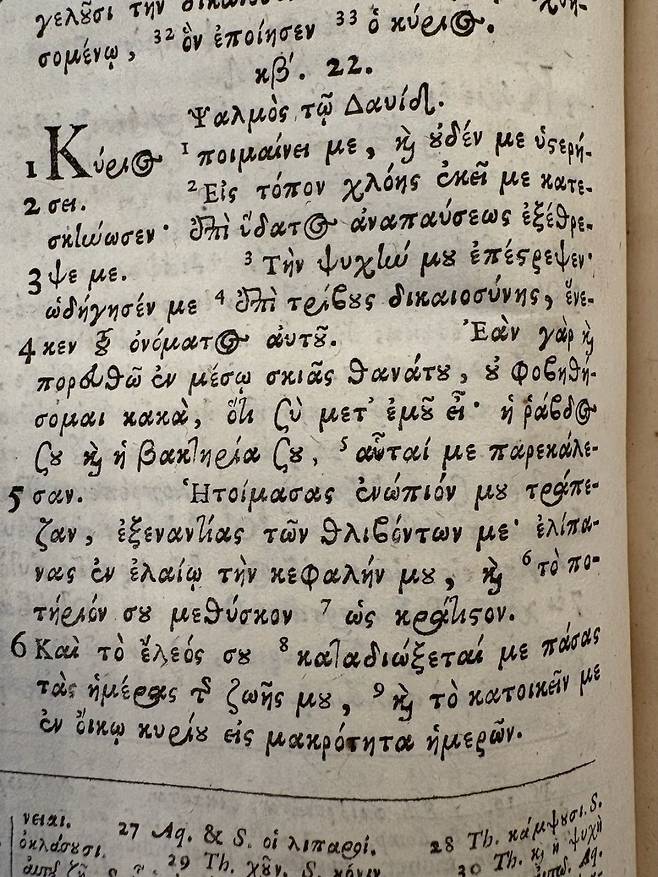 γελοῦσι τὴν
σομένῳ, 32 ὃν ἐποίησεν 33 ὁ κύριος.
κβʹ. 22.
Ψαλμὸς τῷ Δαυίδ.
1 Κύριος 1 ποιμαίνει με, καὶ οὐδέν με ὑστερή-
2 σει. 2 Εἰς τόπον χλόης ἐκεῖ με κατε-
σκήνωσεν· ἐπὶ ὕδατος ἀναπαύσεως ἐξέθρε-
3 ψε με. 3 Τὴν ψυχήν μου ἐπέστρεψεν·
ὡδήγησέν με 4 ἐπὶ τρίβους δικαιοσύνης, ἕνε-
4 κεν τοῦ ὀνόματος αὐτοῦ. Ἐὰν γὰρ καὶ
πορευθῶ ἐν μέσῳ σκιᾶς θανάτου, οὐ φοβηθή-
σομαι κακὰ, ὅτι σὺ μετʼ ἐμοῦ εἶ· ἡ ῥάβδος
σου καὶ ἡ βακτηρία σου, 5 αὗταί με παρεκάλε-
5 σαν. Ἡτοίμασας ἐνώπιόν μου τράπε-
ζαν, ἐξεναντίας τῶν θλιβόντων με· ἐλίπα-
νας ἐν ἐλαίῳ τὴν κεφαλήν μου, καὶ 6 τὸ πο-
τήριόν σου μεθύσκον 7 ὡς κράτιστον.
6 Καὶ τὸ ἔλεός σου 8 καταδιώξεταί με πάσας
τὰς ἡμέρας τῆς ζωῆς μου, 9 καὶ τὸ κατοικεῖν με
ἐν οἴκῳ κυρίου εἰς μακρότητα ἡμερῶν.
νειαι. 27 Aq. & S. οἱ λιπαροί. 28 Th. κάμψουσι. S.
ὀκλάσουσι. 29 Th. 30 Th. καὶ ἡ ψυχὴ
Aq.